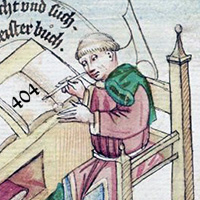 cht vnd such-
eister bůch.
404